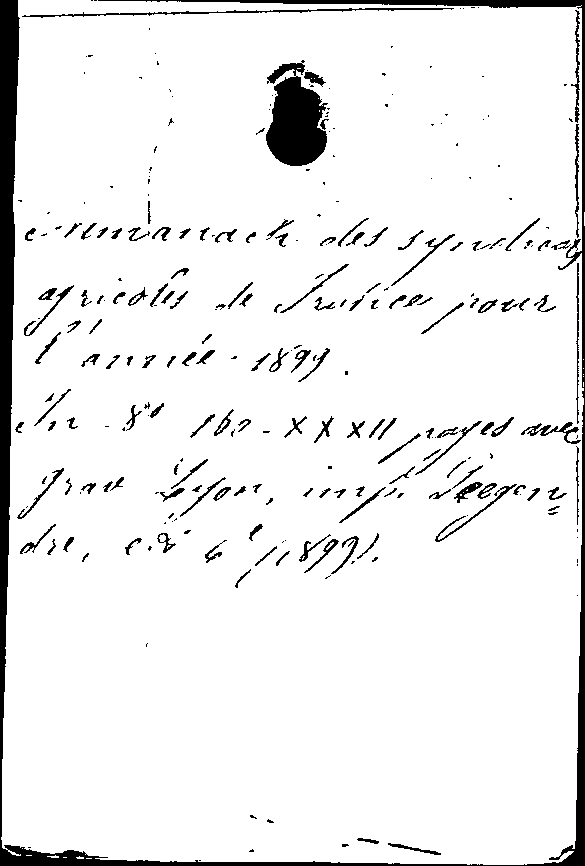 Almanach des syndicats
agricoles de France pour
l'année 1899.
In-8º 160-XXXII pages avec
grav Lyon, imp. Legen=
dre, 6e (1899).